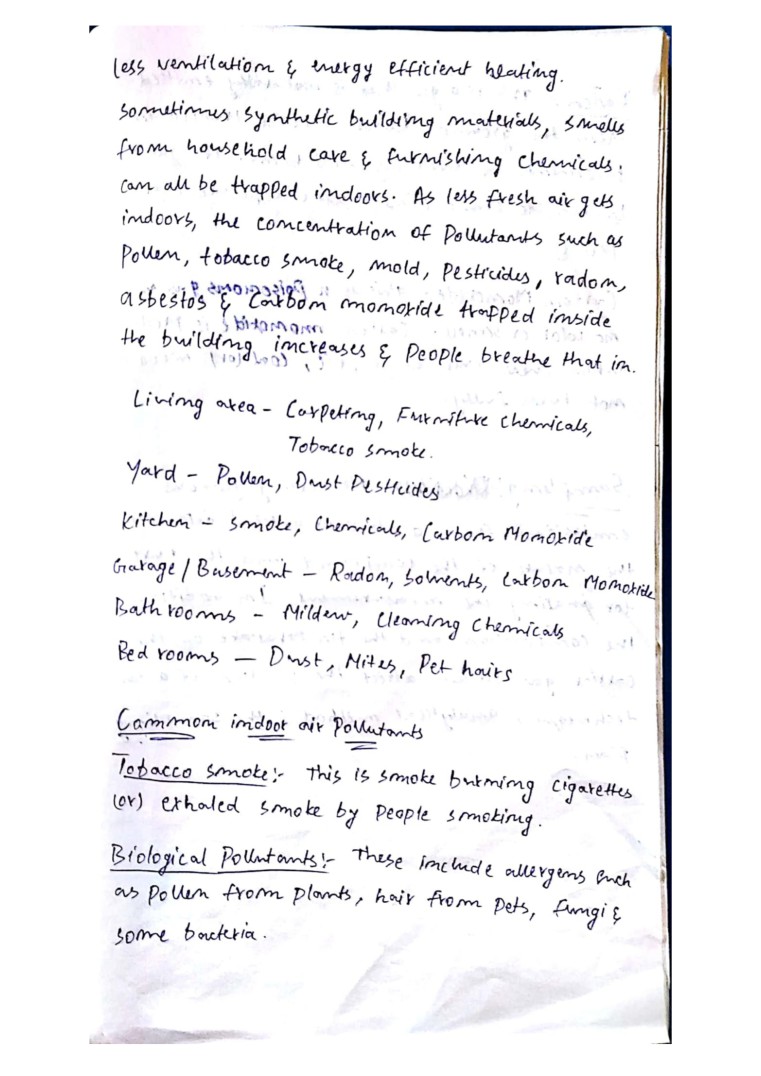 less ventilation & energy efficient heating.
sometimes synthetic building materials, smells
from household, care & furnishing chemicals.
can all be trapped indoors. As less fresh air gets
indoors, the concentration of Pollutants such as
Pollen, tobacco smoke, mold, Pesticides, radon,
asbestos & Carbon monoxide trapped inside
the building increases & People breathe that in.
Living area - Carpeting, Furniture chemicals,
Tobacco smoke.
Yard - Pollen, Dust Pesticides
Kitchen - smoke, Chemicals, Carbon Monoxide
Garage / Basement - Radon, Solvents, Carbon Monoxide
Bath rooms - Mildew, Cleaning Chemicals
Bed rooms - Dust, Mites, Pet hairs
Cammon indoor air Pollutants
Tobacco smoke:- This is smoke burning cigarettes
(or) exhaled smoke by People smoking.
Biological Pollutants:- These include allergens such
as Pollen from plants, hair from Pets, fungi &
some bacteria.